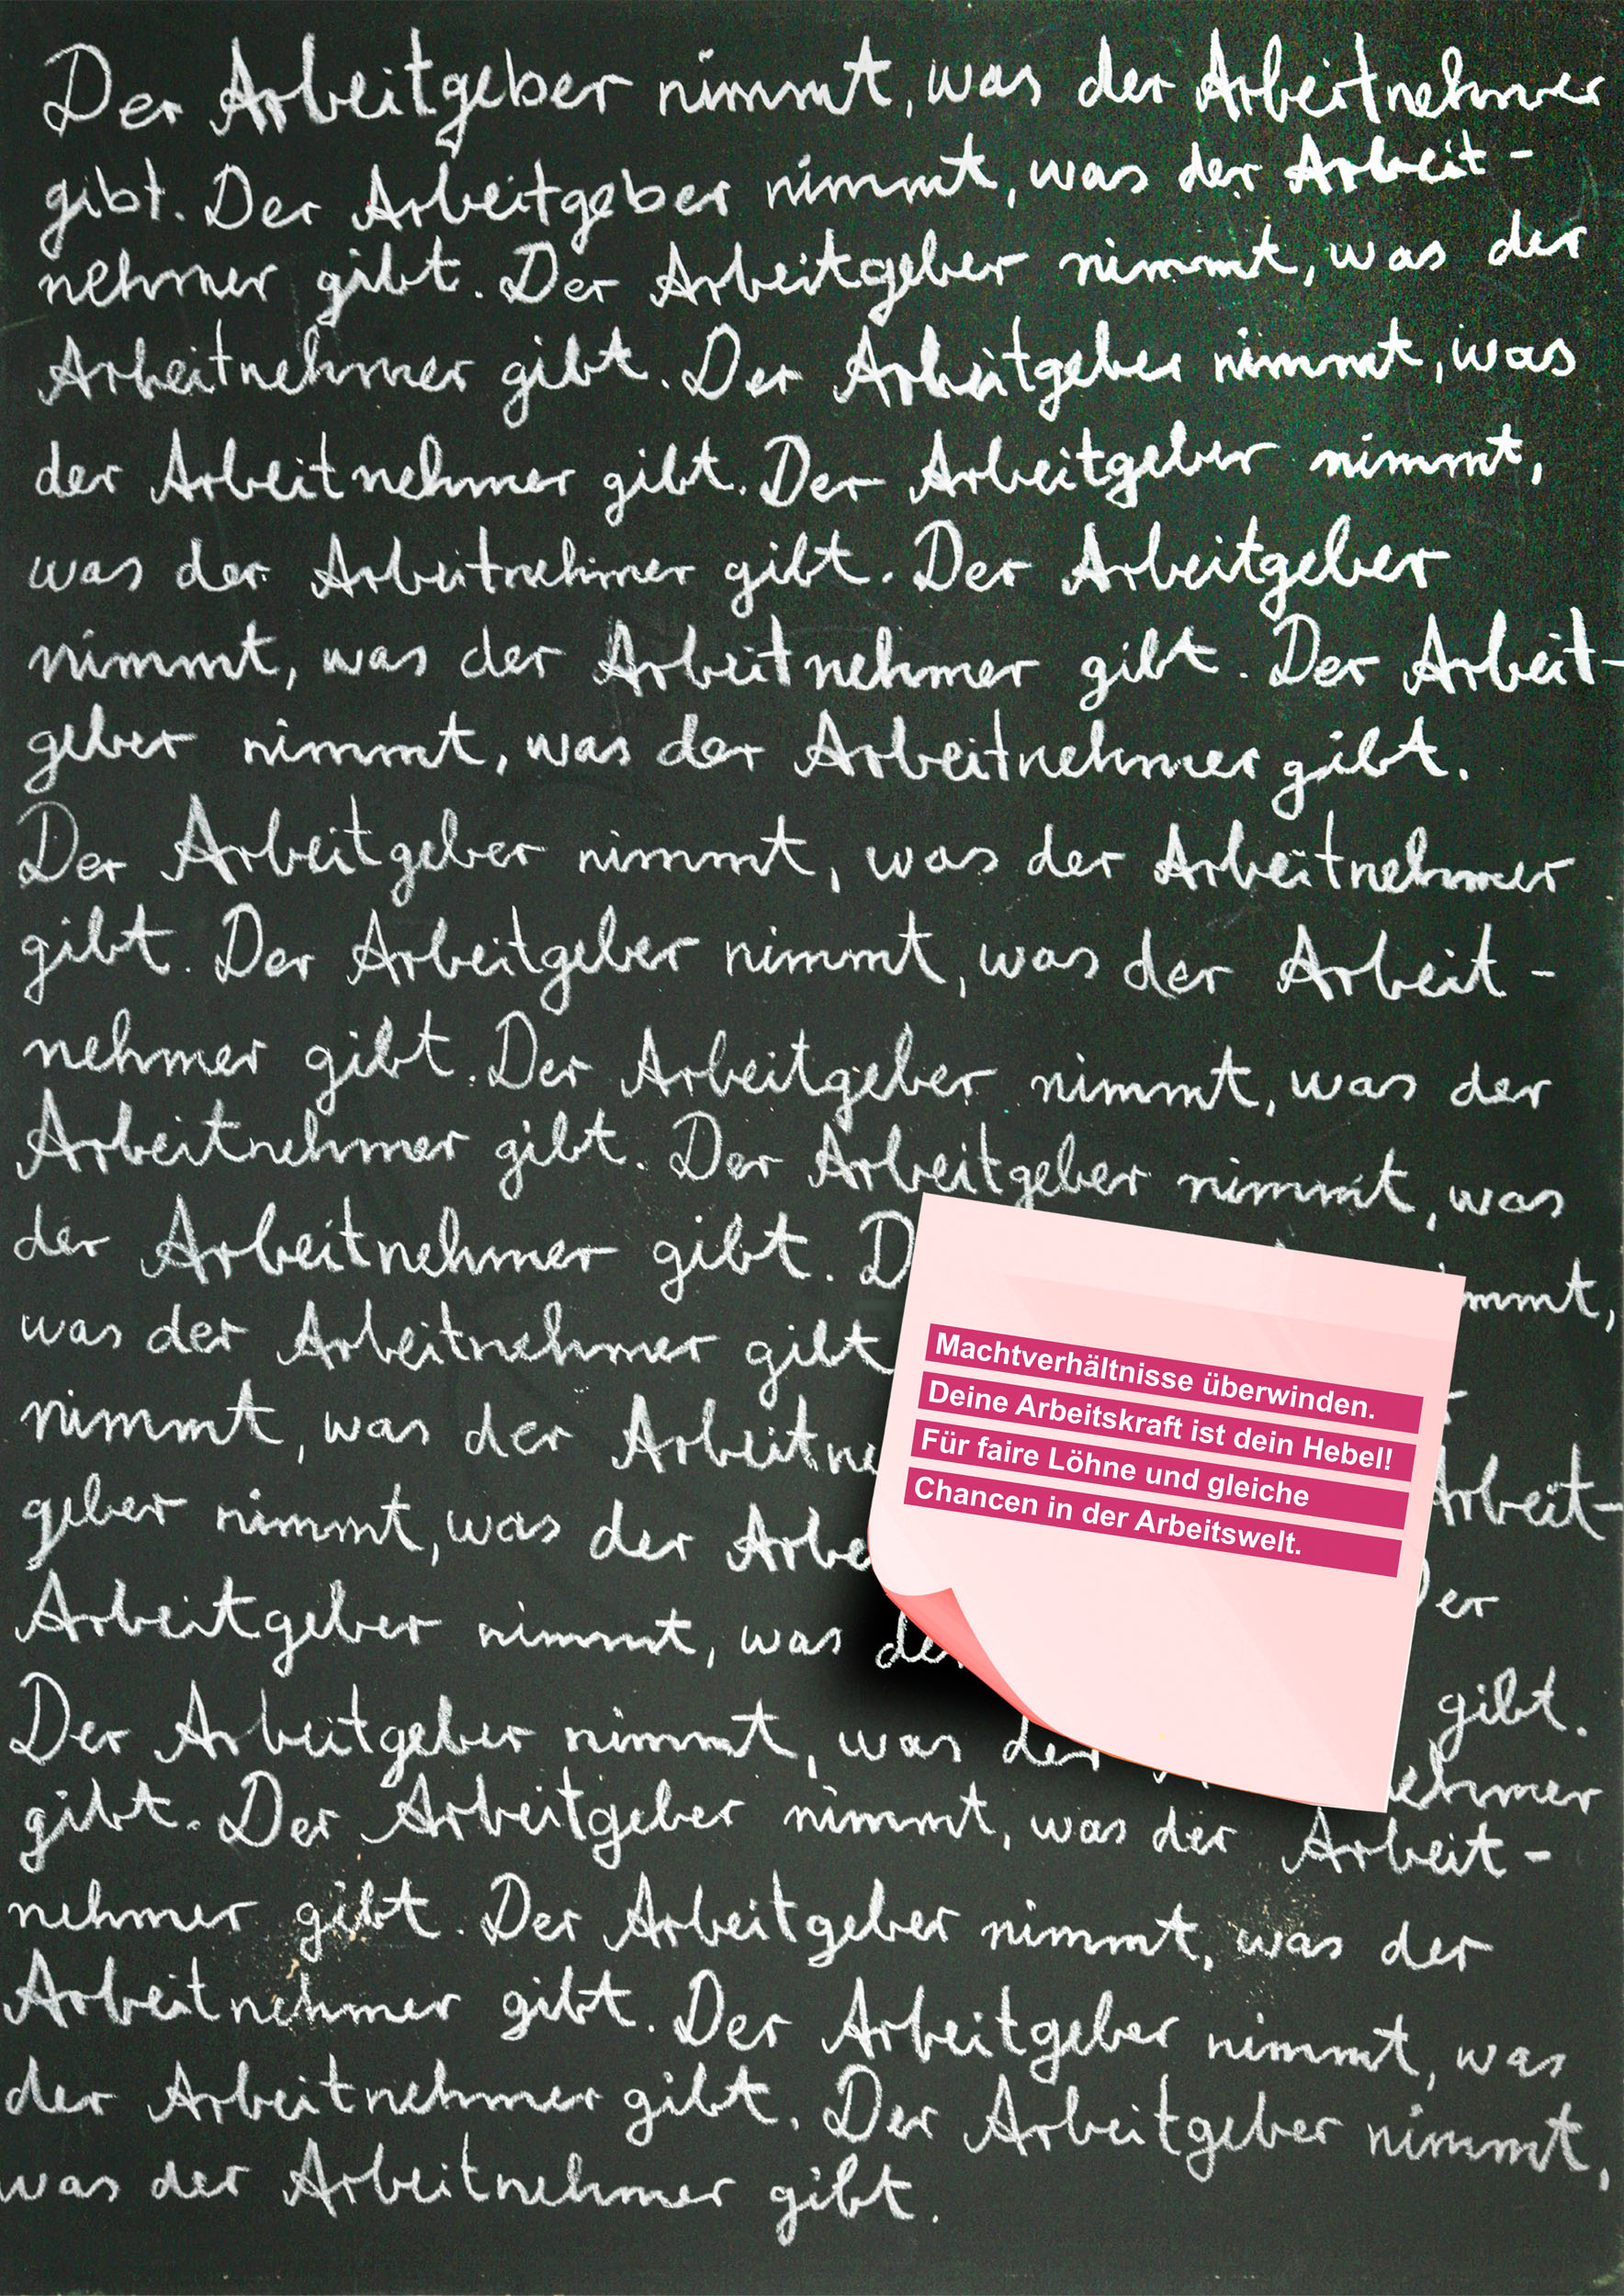 Der Arbeitgeber nimmt, was der Arbeitnehmer
gibt. Der Arbeitgeber nimmt, was der Arbeit-
nehmer gibt. Der Arbeitgeber nimmt, was der
Arbeitnehmer gibt. Der Arbeitgeber nimmt, was
der Arbeitnehmer gibt. Der Arbeitgeber nimmt,
was der Arbeitnehmer gibt. Der Arbeitgeber
nimmt, was der Arbeitnehmer gibt. Der Arbeit-
geber nimmt, was der Arbeitnehmer gibt.
Der Arbeitgeber nimmt, was der Arbeitnehmer
gibt. Der Arbeitgeber nimmt, was der Arbeit-
nehmer gibt. Der Arbeitgeber nimmt, was der
Arbeitnehmer gibt. Der Arbeitgeber nimmt, was
der Arbeitnehmer gibt. D mmt,
was der Arbeitnehmer gibt
nimmt, was der Arbeitne Arbeit-
geber nimmt, was der Arbe Der
Arbeitgeber nimmt, was de gibt.
Der Arbeitgeber nimmt, was der ehmer
gibt. Der Arbeitgeber nimmt, was der Arbeit-
nehmer gibt. Der Arbeitgeber nimmt, was der
Arbeitnehmer gibt. Der Arbeitgeber nimmt, was
der Arbeitnehmer gibt. Der Arbeitgeber nimmt,
was der Arbeitnehmer gibt.
Machtverhältnisse überwinden.
Deine Arbeitskraft ist dein Hebel!
Für faire Löhne und gleiche
Chancen in der Arbeitswelt.